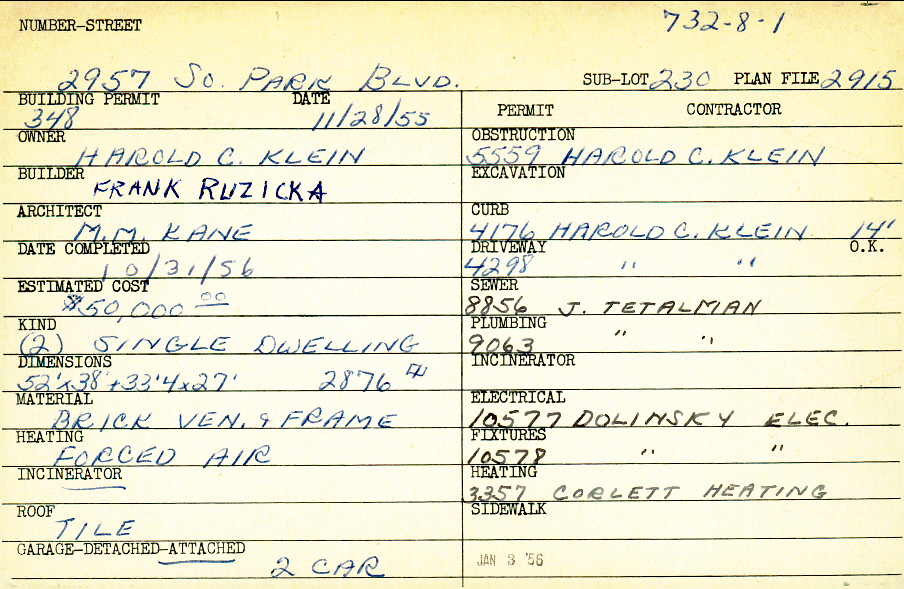 732-8-1
NUMBER-STREET
2957 So. PARK BLVD. SUB-LOT 230 PLAN FILE 2915
BUILDING PERMIT DATE
348 11/28/55
OWNER
HAROLD C. KLEIN
BUILDER
FRANK RUZICKA
ARCHITECT
M.M. KANE
DATE COMPLETED
10/31/56
ESTIMATED COST
$50,000 00
KIND
(2) SINGLE DWELLING
DIMENSIONS
52'x38'+33'4x27' 2876
MATERIAL
BRICK VEN. & FRAME
HEATING
FORCED AIR
INCINERATOR
ROOF
TILE
GARAGE-DETACHED-ATTACHED
2 CAR
PERMIT CONTRACTOR
OBSTRUCTION
5559 HAROLD C. KLEIN
EXCAVATION
CURB
4176 HAROLD C. KLEIN 14'
DRIVEWAY O.K.
4298 " "
SEWER
8856 J. TETALMAN
PLUMBING
9063 " "
INCINERATOR
ELECTRICAL
10577 DOLINSKY ELEC.
FIXTURES
10578 " "
HEATING
3357 CORLETT HEATING
SIDEWALK
JAN 3 '56